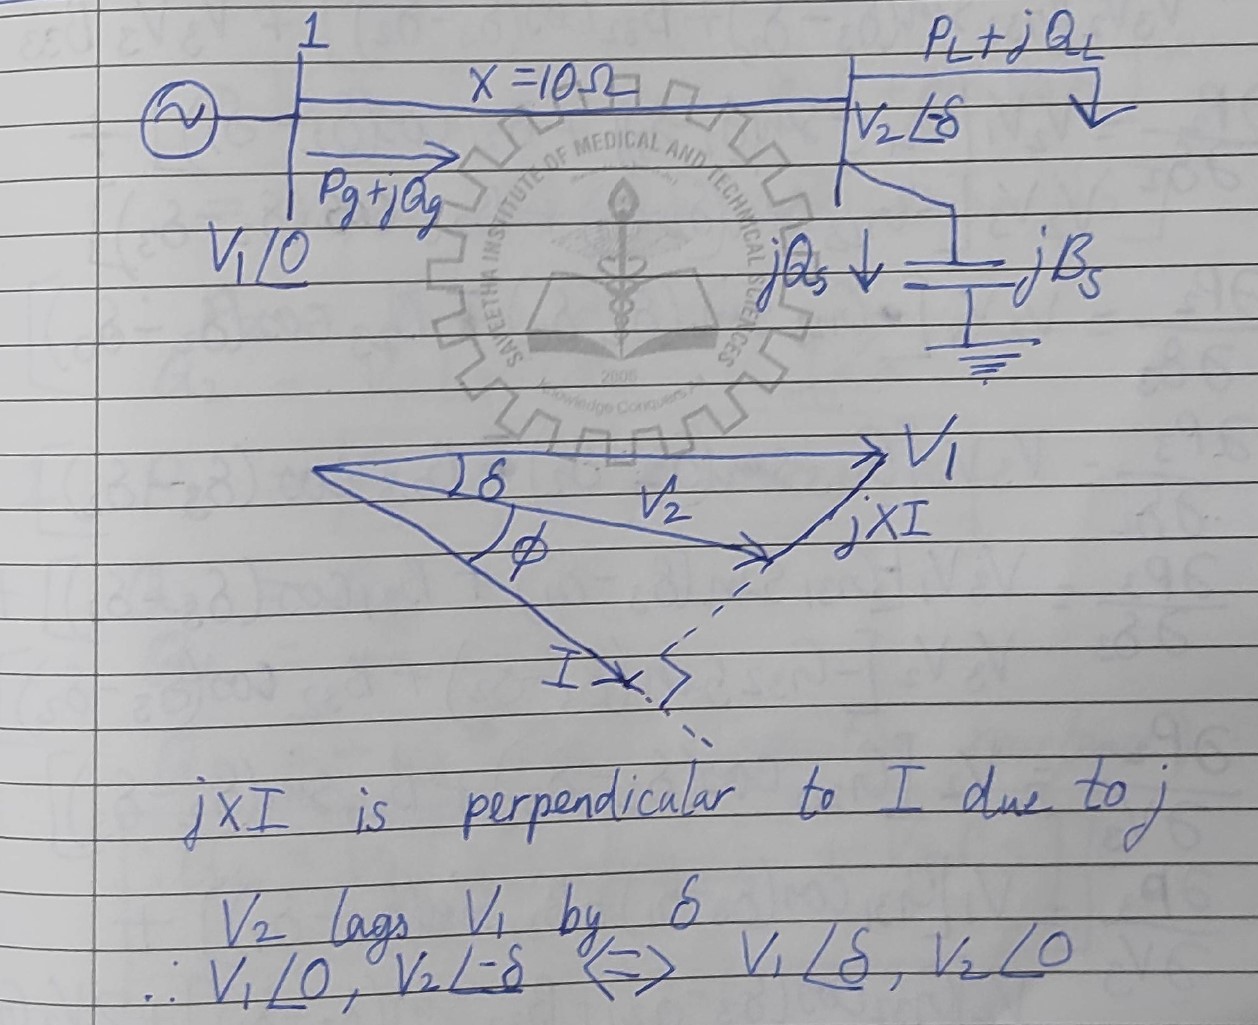 1
X = 10Ω
PL + jQL
V2 ∠-δ
Pg + jQg
V1 ∠0
jQs
jBs
SAVEETHA INSTITUTE OF MEDICAL AND TECHNICAL SCIENCES
2006
Knowledge Conquers All
V1
δ
V2
jXI
ϕ
I
jXI is perpendicular to I due to j
V2 lags V1 by δ
∴ V1 ∠0, V2 ∠-δ <=> V1 ∠δ, V2 ∠0